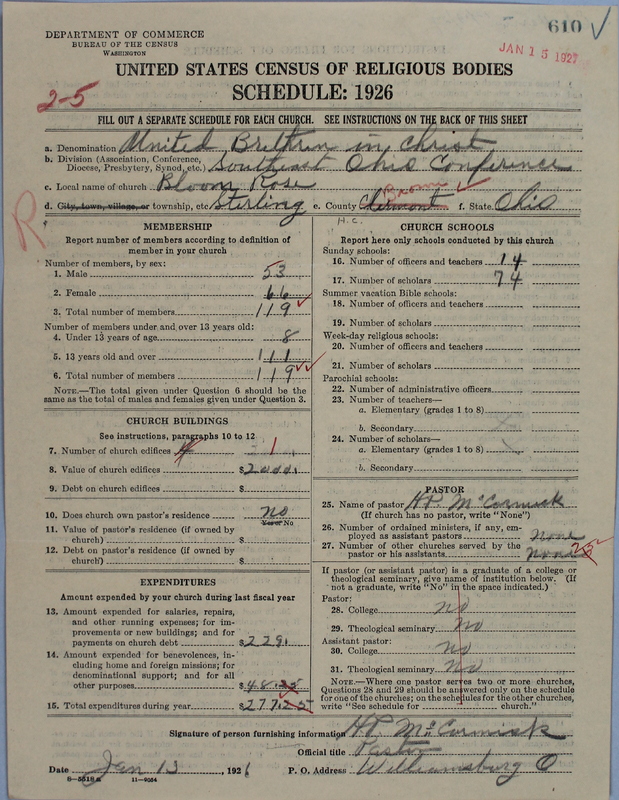 610 ✓
DEPARTMENT OF COMMERCE
BUREAU OF THE CENSUS
WASHINGTON
JAN 15 1927
UNITED STATES CENSUS OF RELIGIOUS BODIES
SCHEDULE: 1926
2-5
FILL OUT A SEPARATE SCHEDULE FOR EACH CHURCH. SEE INSTRUCTIONS ON THE BACK OF THIS SHEET
a. Denomination United Brethren in Christ
b. Division (Association, Conference, Diocese, Presbytery, Synod, etc.) Southeast Ohio Conference
c. Local name of church Bloom Rose
d. City, town, village, or township, etc. Sterling e. County Clermont Brown ✓ f. State Ohio
R
H.C.
MEMBERSHIP
Report number of members according to definition of member in your church
Number of members, by sex:
1. Male 53
2. Female 66
3. Total number of members 119 ✓
Number of members under and over 13 years old:
4. Under 13 years of age 8
5. 13 years old and over 111
6. Total number of members 119 ✓✓
NOTE.—The total given under Question 6 should be the same as the total of males and females given under Question 3.
CHURCH BUILDINGS
See instructions, paragraphs 10 to 12
7. Number of church edifices 1
8. Value of church edifices $2000.
9. Debt on church edifices $
10. Does church own pastor's residence no
Yes or No
11. Value of pastor's residence (if owned by church) $
12. Debt on pastor's residence (if owned by church) $
EXPENDITURES
Amount expended by your church during last fiscal year
13. Amount expended for salaries, repairs, and other running expenses; for improvements or new buildings; and for payments on church debt $229.
14. Amount expended for benevolences, including home and foreign missions; for denominational support; and for all other purposes $48.25
15. Total expenditures during year $277.25
CHURCH SCHOOLS
Report here only schools conducted by this church
Sunday schools:
16. Number of officers and teachers 14
17. Number of scholars 74
Summer vacation Bible schools:
18. Number of officers and teachers
19. Number of scholars
Week-day religious schools:
20. Number of officers and teachers
21. Number of scholars
Parochial schools:
22. Number of administrative officers
23. Number of teachers—
a. Elementary (grades 1 to 8)
b. Secondary
24. Number of scholars—
a. Elementary (grades 1 to 8)
b. Secondary
PASTOR
25. Name of pastor H.P. McCormick
(If church has no pastor, write "None")
26. Number of ordained ministers, if any, employed as assistant pastors None
27. Number of other churches served by the pastor or his assistants None
If pastor (or assistant pastor) is a graduate of a college or theological seminary, give name of institution below. (If not a graduate, write "No" in the space indicated.)
Pastor:
28. College no
29. Theological seminary No
Assistant pastor:
30. College no
31. Theological seminary No
NOTE.—Where one pastor serves two or more churches, Questions 28 and 29 should be answered only on the schedule for one of the churches; on the schedules for the other churches, write "See schedule for church."
Signature of person furnishing information H.P. McCormick
Official title Pastor
Date Jan 13, 1926 P. O. Address Williamsburg O
8-5518a 11-9054